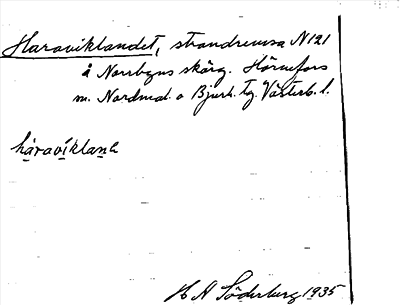 Haraviklandet, strandremsa N 121
å Norrbyns skärg. Hörnefors
sn. Nordmal. o Bjurh. tg. Västerb. l.
håravíklanḍ
H A Söderberg 1935